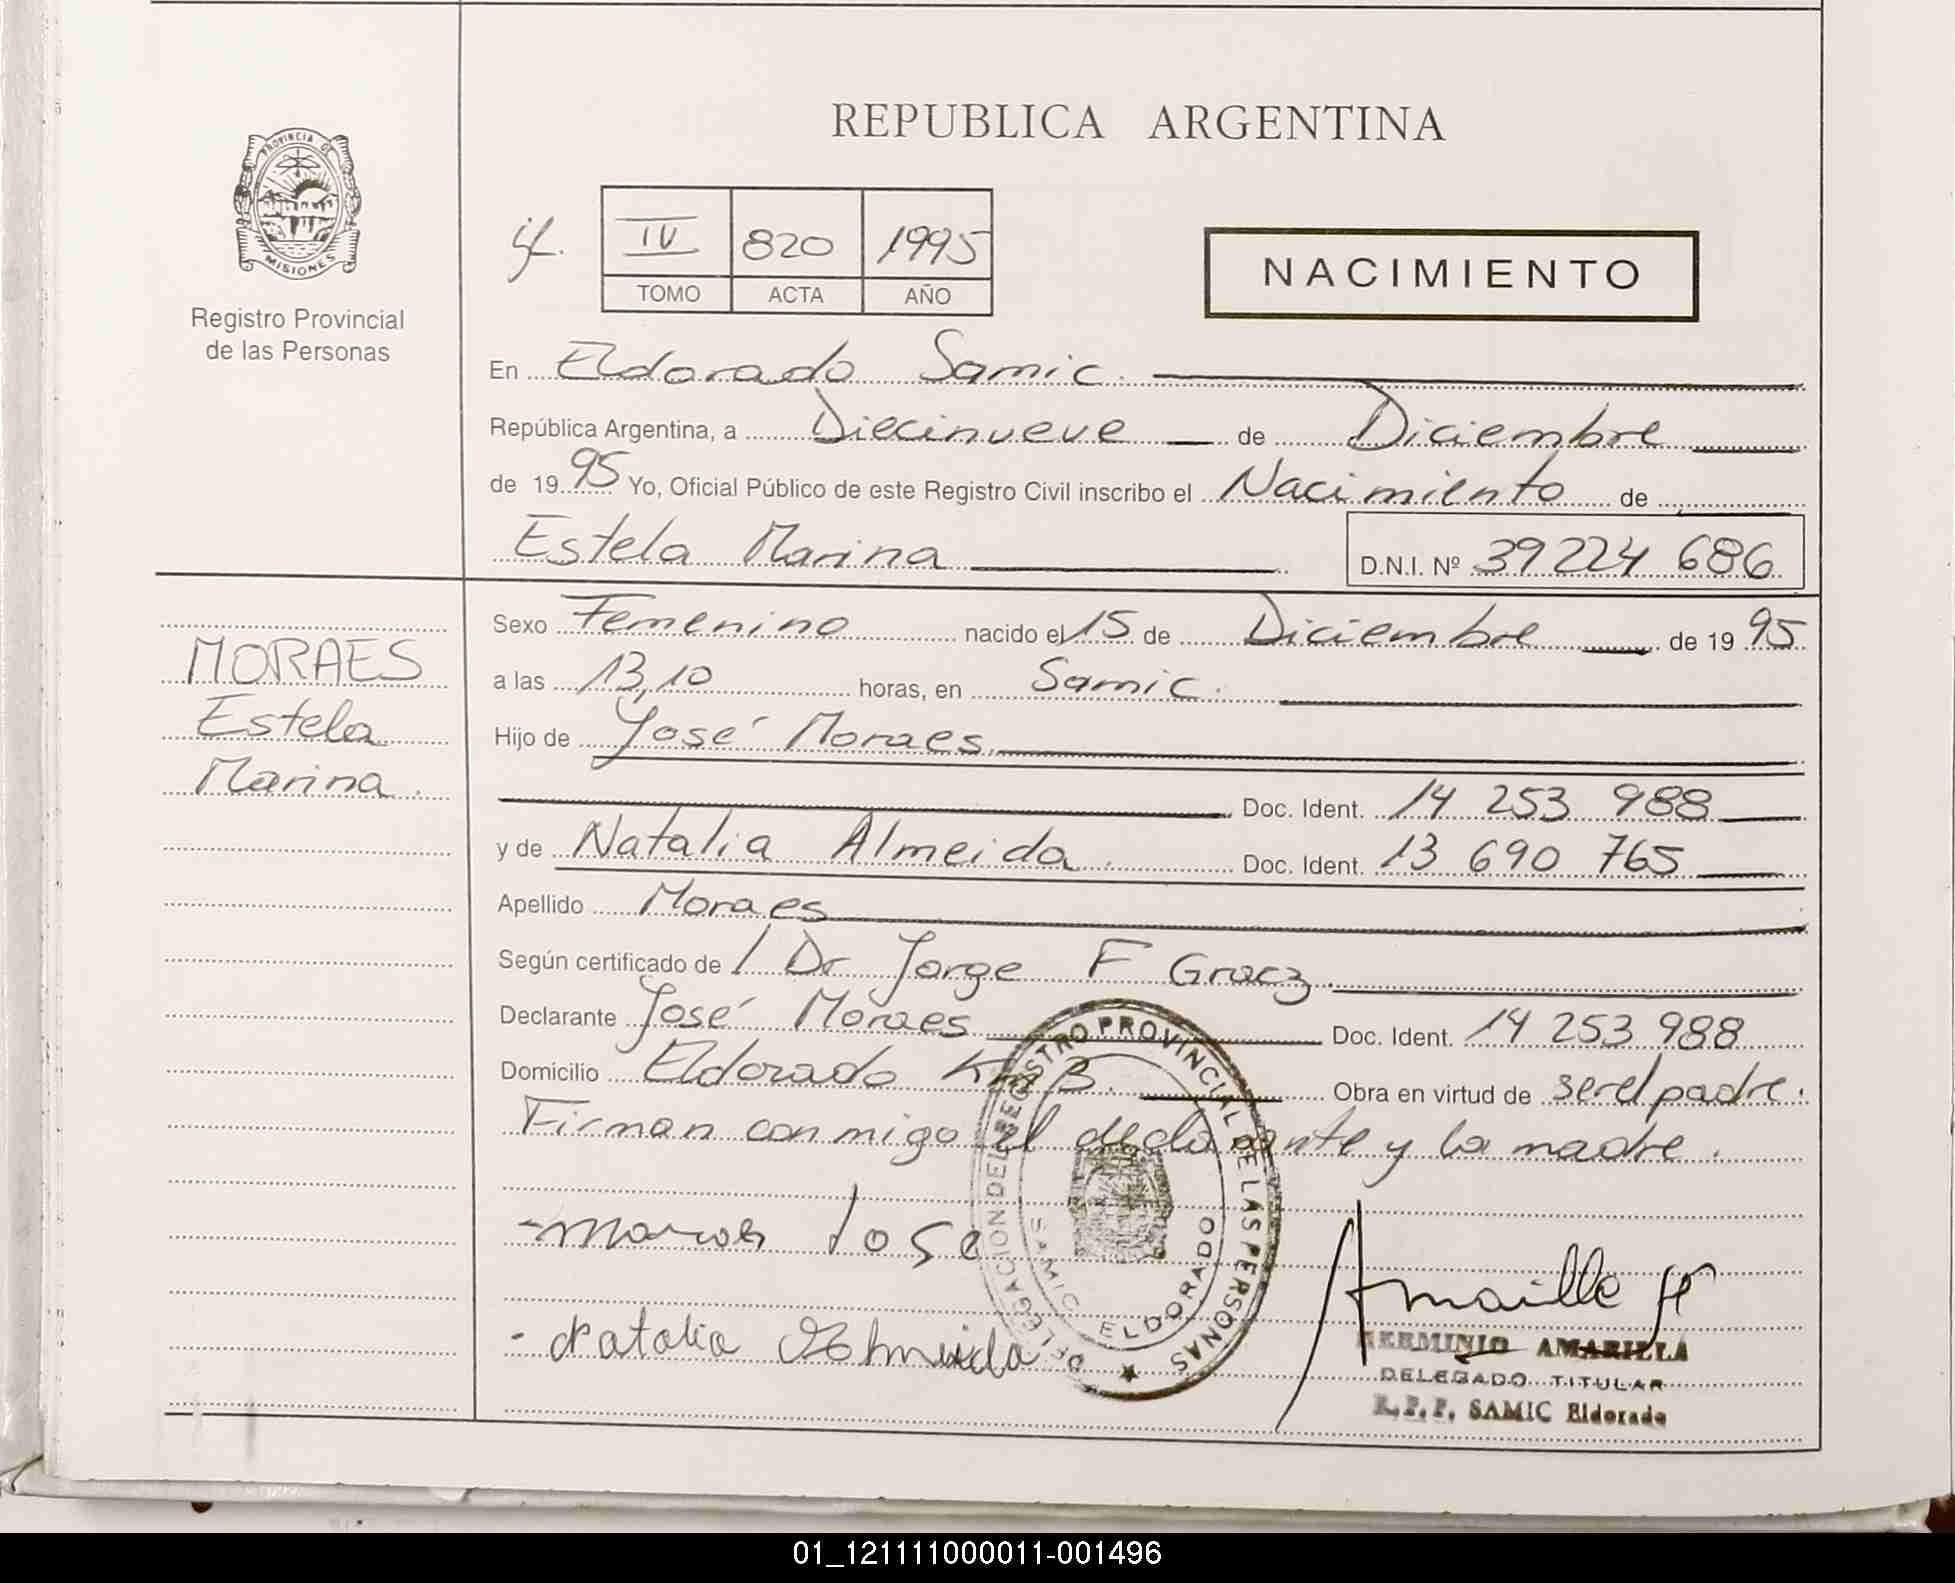 REPUBLICA ARGENTINA
PROVINCIA DE
MISIONES
Registro Provincial
de las Personas
IV 820 1995
TOMO ACTA AÑO
NACIMIENTO
En Eldorado Samic.
República Argentina, a Diecinueve de Diciembre
de 1995 Yo, Oficial Público de este Registro Civil inscribo el Nacimiento de
Estela Marina D.N.I. Nº 39 224 686
MORAES
Estela
Marina.
Sexo Femenino nacido el 15 de Diciembre de 1995
a las 13,10 horas, en Samic.
Hijo de José Moraes
Doc. Ident. 14 253 988
y de Natalia Almeida. Doc. Ident. 13 690 765
Apellido Moraes
Según certificado de / Dr Jorge F Gracz.
Declarante José Moraes Doc. Ident. 14 253 988
Domicilio Eldorado Obra en virtud de ser el padre.
Firman conmigo el declarante y la madre.
DELEGACION DEL REGISTRO PROVINCIAL DE LAS PERSONAS
SAMIC ELDORADO
Jose
- Natalia Almeida
HERMINIO AMARILLA
DELEGADO TITULAR
R.P.P. SAMIC Eldorado
01_121111000011-001496